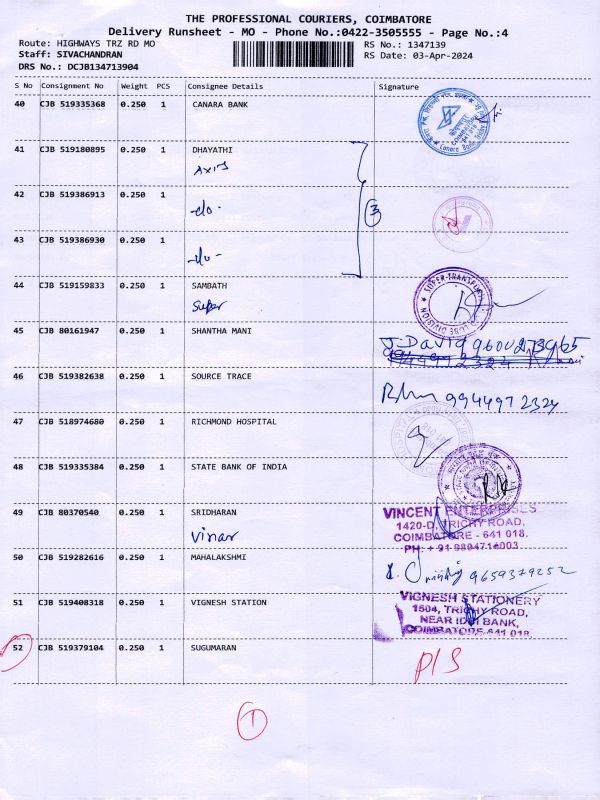 THE PROFESSIONAL COURIERS, COIMBATORE
Delivery Runsheet - MO - Phone No.:0422-3505555 - Page No.:4
Route: HIGHWAYS TRZ RD MO RS No.: 1347139
Staff: SIVACHANDRAN RS Date: 03-Apr-2024
DRS No.: DCJB134713904
S No Consignment No Weight PCS Consignee Details Signature
40 CJB 519335368 0.250 1 CANARA BANK
41 CJB 519180895 0.250 1 DHAYATHI
Axis
42 CJB 519386913 0.250 1
-do-
3
43 CJB 519386930 0.250 1
-do-
44 CJB 519159833 0.250 1 SAMBATH
Super
SUPER TRANSPORT
45 CJB 80161947 0.250 1 SHANTHA MANI
J. David 9600273965
46 CJB 519382638 0.250 1 SOURCE TRACE
9944972324
47 CJB 518974680 0.250 1 RICHMOND HOSPITAL
48 CJB 519335384 0.250 1 STATE BANK OF INDIA
49 CJB 80370540 0.250 1 SRIDHARAN
VINCENT ENTERPRISES
1420-D, TRICHY ROAD,
COIMBATORE - 641 018.
PH: + 91 9894714003
50 CJB 519282616 0.250 1 MAHALAKSHMI
9659379252
51 CJB 519408318 0.250 1 VIGNESH STATION
VIGNESH STATIONERY
1604, TRICHY ROAD,
NEAR IDBI BANK,
COIMBATORE-641 018.
52 CJB 519379104 0.250 1 SUGUMARAN
P/S
1